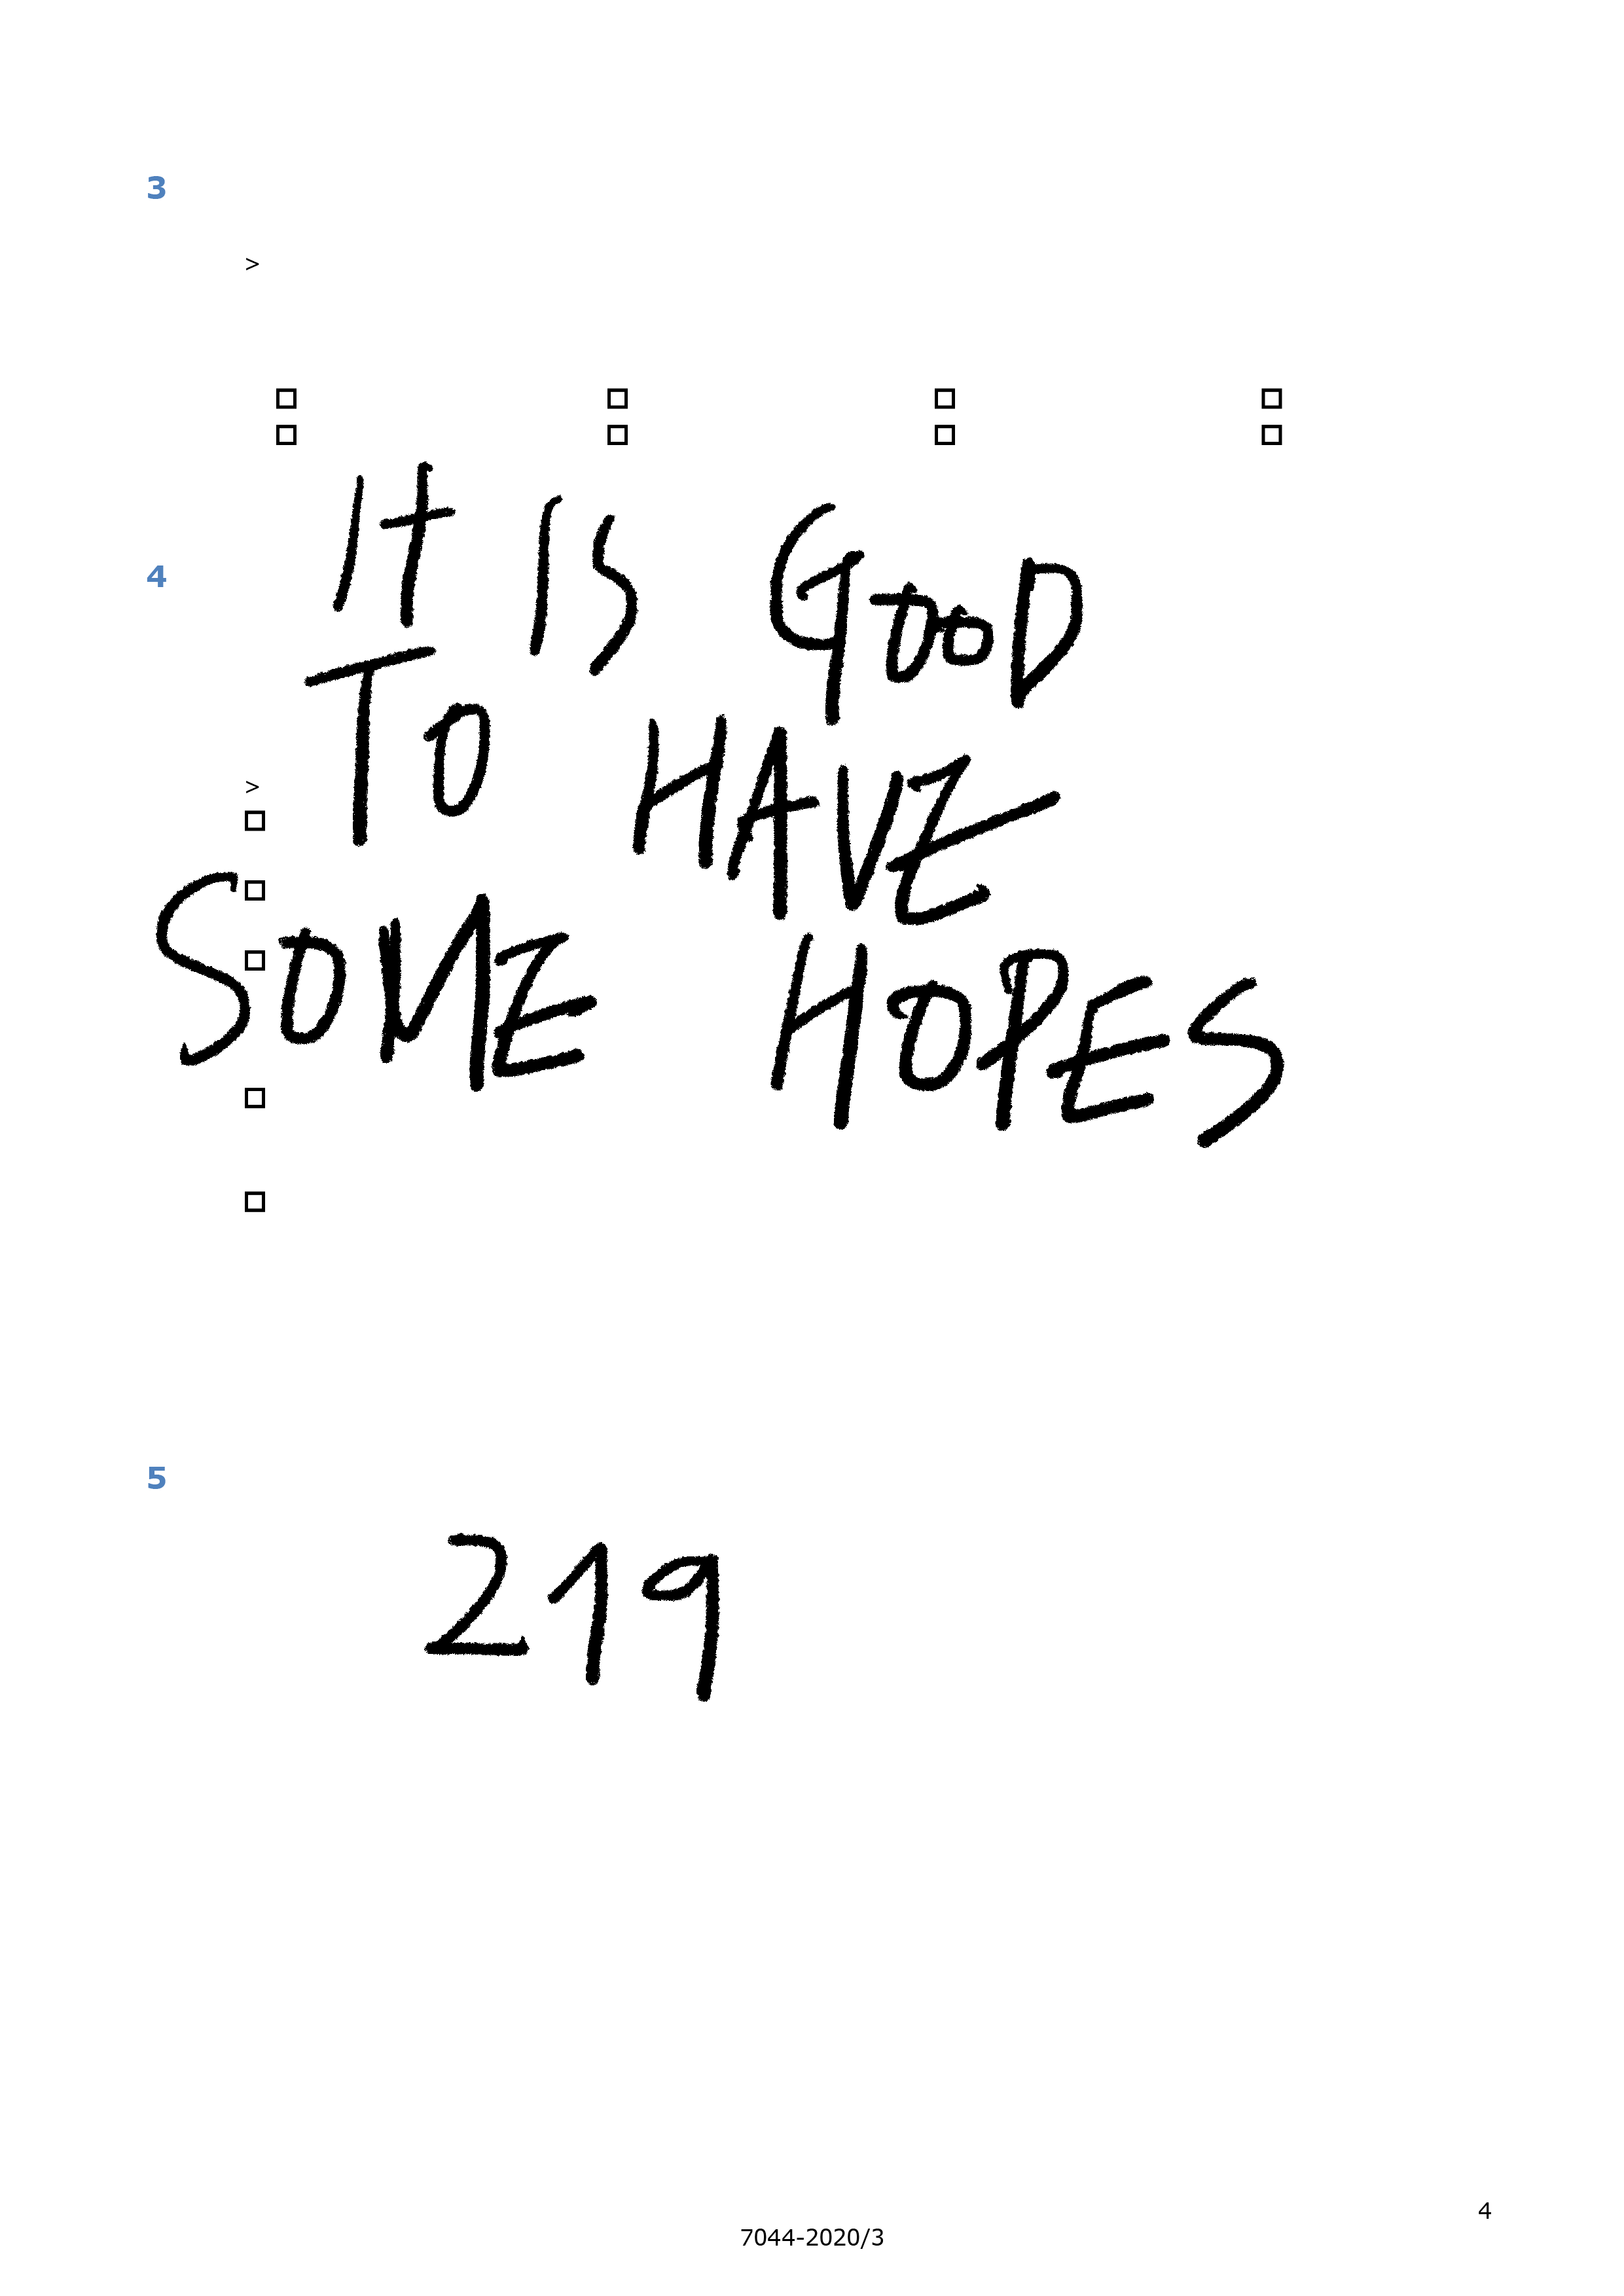 3
>
□ □ □ □
□ □ □ □
It IS GooD
4
To HAVE
>
□
□
SOME HOPES
□
□
□
5
219
4
7044-2020/3